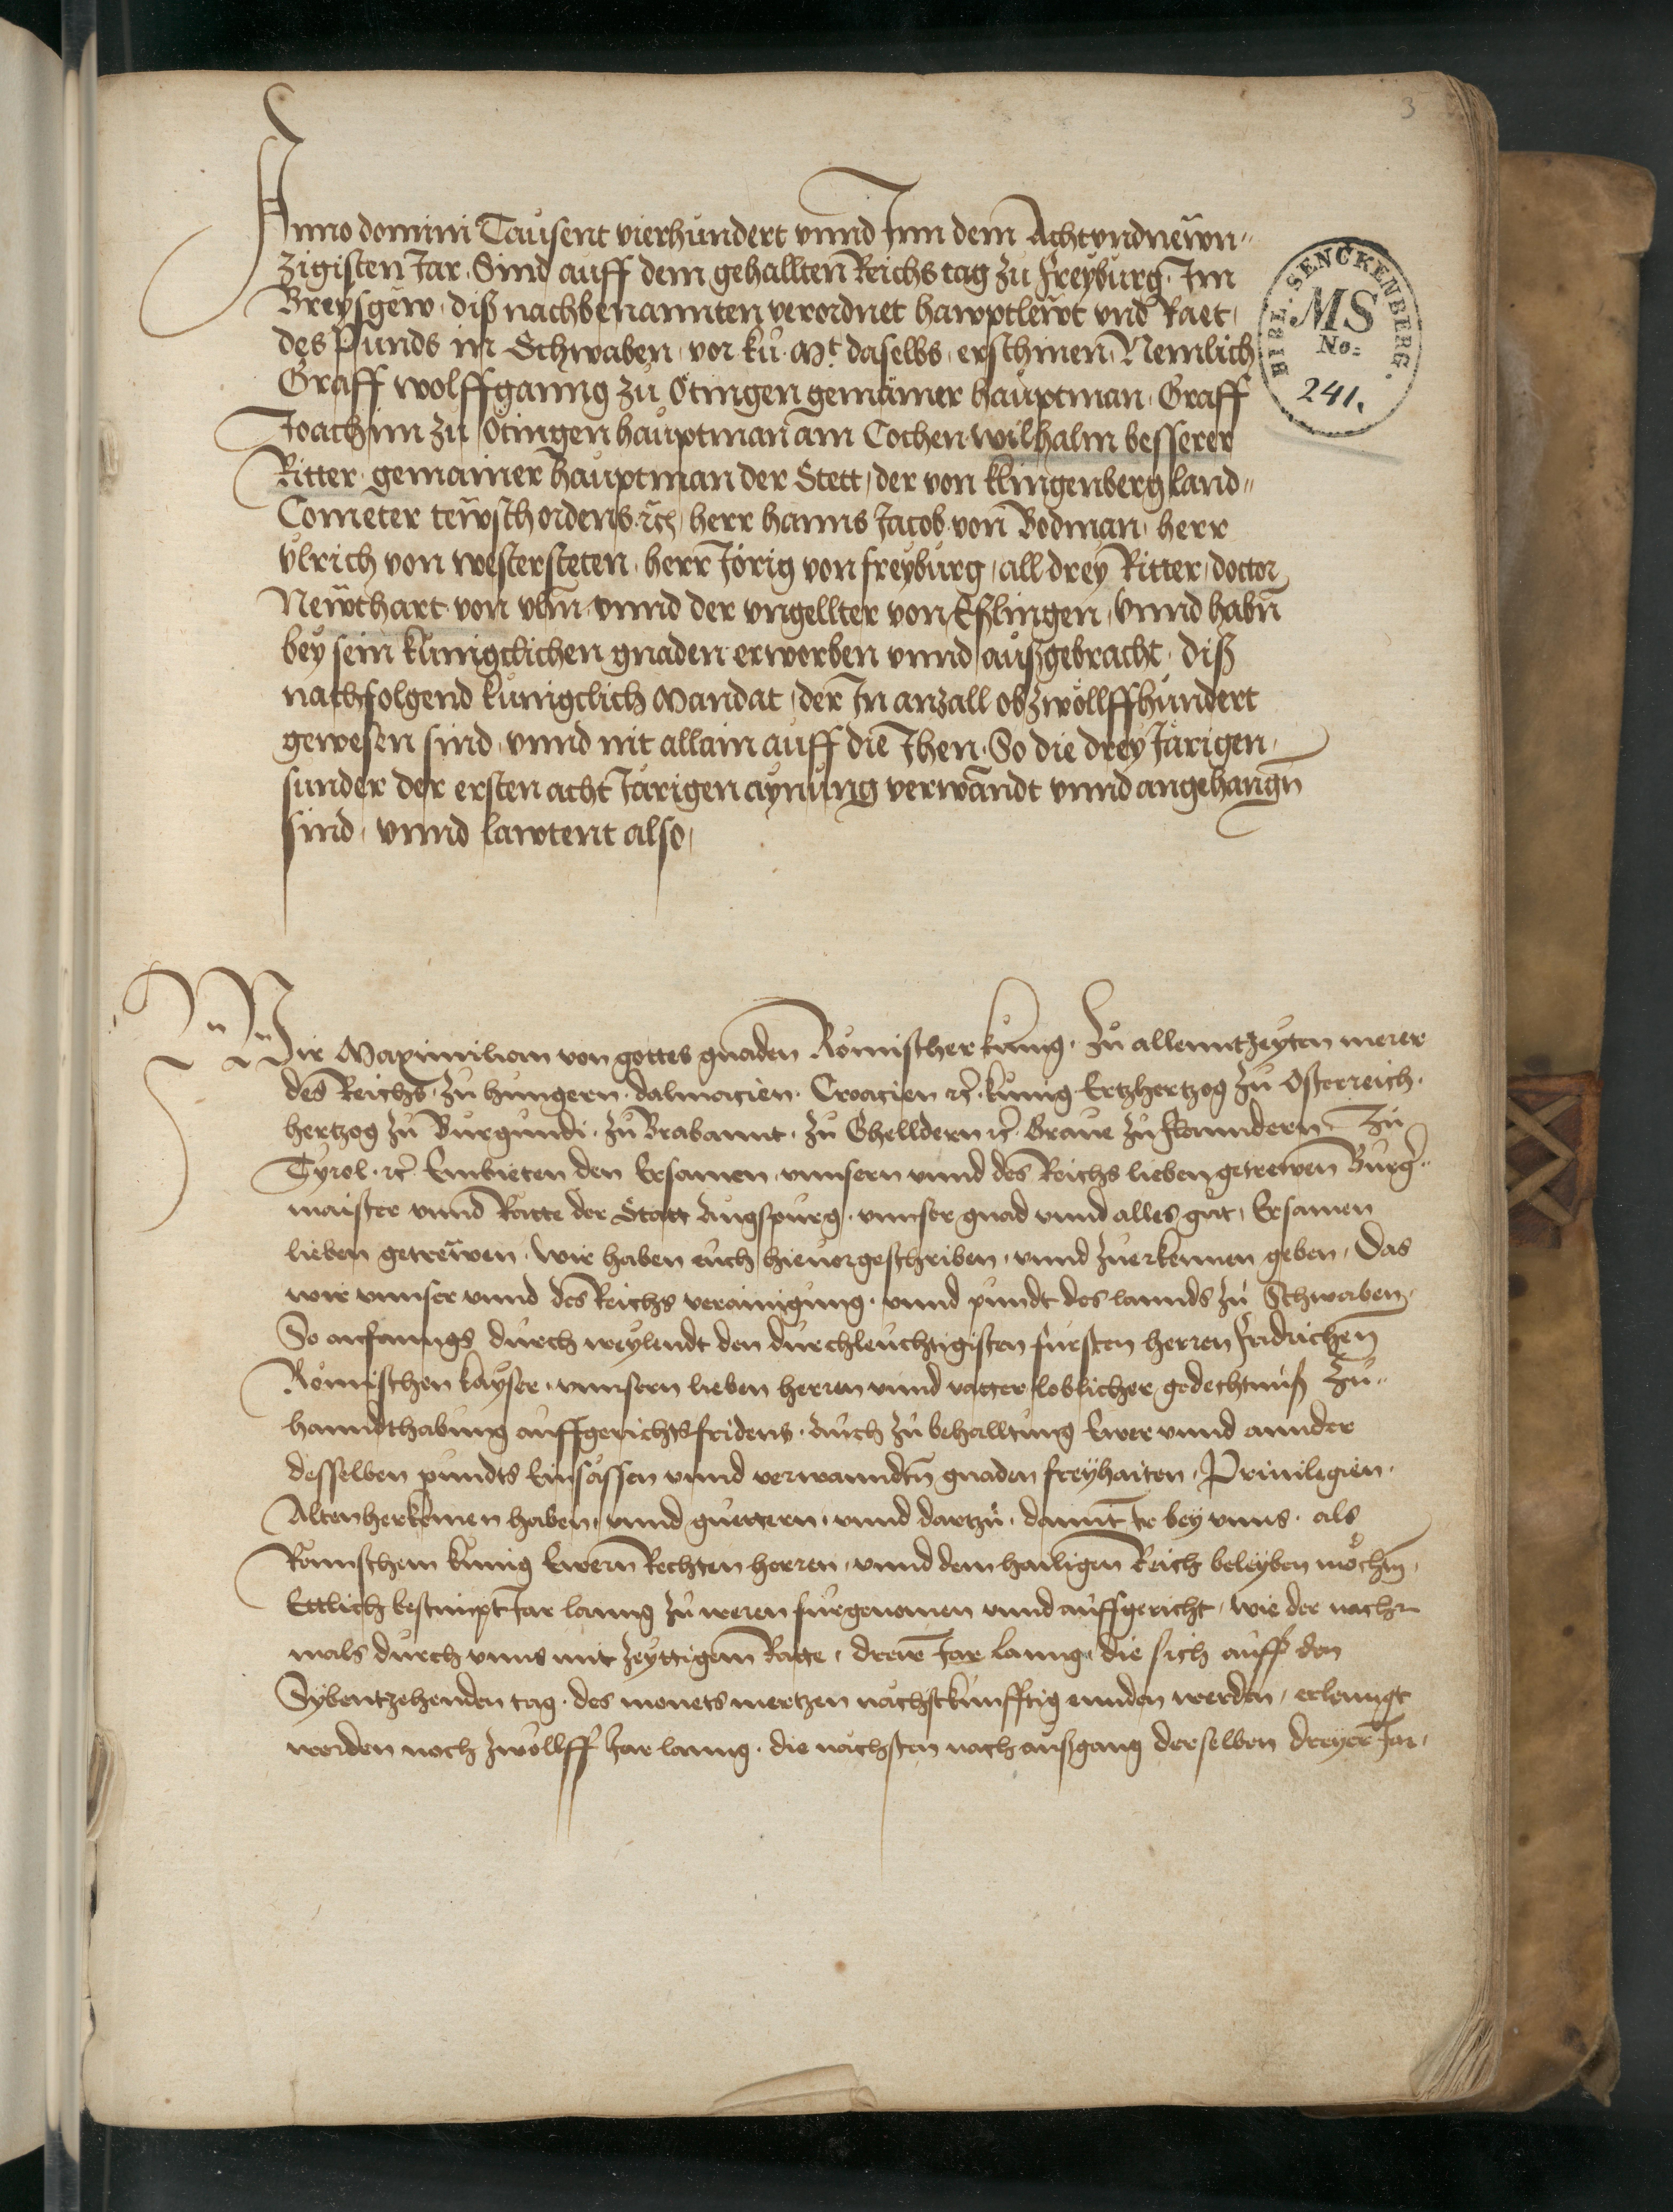 3
Anno domini Tausent vierhundert vnnd Inn dem Achtvndnewn„
zigisten Jar. Sind auff dem gehallten Reichs tag zu freyburg. Im
Breysgew. diß nachbenannten verordnet hawptlewt vnd Raet,
des Punds in Schwaben, vor ku. Mt. daselbs, erschinen, Nemlich
Graff wolffganng zu Ötingen gemainer hauptman, Graff
Joachim zu Ötingen hauptman am Cochen wilhalm besserer
Ritter. gemainer hauptman der Stett, der von klingenberg land„
Cometer tewsch ordens. rc, herr hanns Jacob von Bodman, herr
vlrich von westersteten, herr Jörig von freyburg, all drey Ritter, doctor
Newthart von vlm vnnd der vngellter von Eßlingen, vnnd habn
bey sein kunigclichen gnaden erworben vnnd außgebracht, diß
nachfolgend kunigclich Mandat, der In anzall ob zwöllffhundert
gewesen sind, vnnd nit allain auff die Ihen. So die drey Järigen,
sunder der ersten acht Järigen aynung verwandt vnnd angehangn
sind, vnnd lawtent also,
Wir Maximilian von gottes gnaden Römischer kunig. zu allenntzeyten merer
des Reichs, zu hungern. dalmacien. Croacien rc. kunig. Ertzhertzog zu Osterreich.
hertzog zu Burgundi. zu Brabannt. zu Ghelldern rc. Graue zu flanndern zu
Tyrol. rc. Embieten den Ersamen vnnsern vnnd des Reichs lieben getrewen Burg„
maister vnnd Ratte der Statt Augspurg. vnnser gnad vnnd alles gut, Ersamen
lieben getrewen. wir haben euch hieuorgeschriben, vnnd zuerkennen geben, Das
wir vnnser vnnd des Reichs verainigung. vnnd pundt des lannds zu Schwaben,
So anfanngs durch weylendt den durchleuchtigisten fursten herren fridrichen
Römischen kayser. vnnsern lieben herren vnnd vatter loblicher gedechtnuß zu„
hanndthabung auffgerichts fridens. auch zu behalltung Ewer vnnd annder
desselben pundts Einsässen vnnd verwanndtn gnaden freyhaiten. Priuilegien.
Altenherkomen haben, vnnd guettern, vnnd dartzu. damit Ir bey vnns. als
Römischem kunig Ewerm Rechten herren, vnnd dem hailigen Reich beleyben möchtn,
Ettlich bestimpt Jar lanng zu weren furgenomen vnnd auffgericht, wie der nach„
mals durch vnns mit zeyttigem Ratte, dreie Jar lanng, die sich auff den
Sybentzehenden tag. des monets mertzen nachstkunfftig ennden werden, erlenngt
worden noch zwöllff Jar lanng. die nächsten nach außgang derselben dreyer Jar,
BIBL. SENCKENBERG.
MS
No:
241.